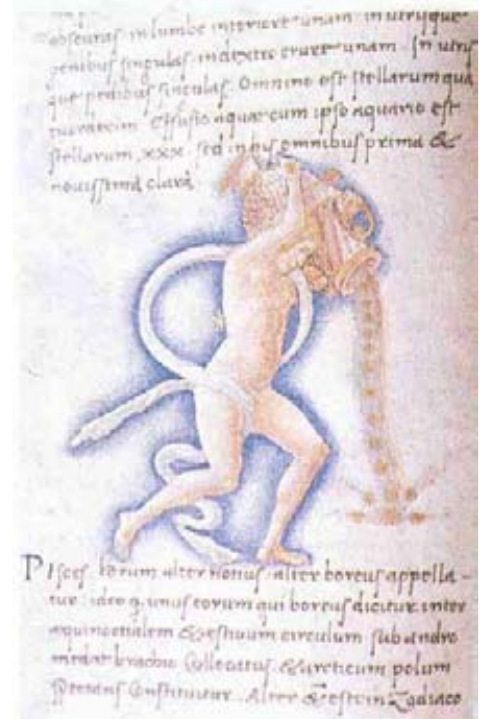 obscuras in lumbo interiore unam in utrisque
genibus singulas in dextro crure unam In utris
que pedibus singulas Omnino est stellarum qua
tuordecim Effusio aquae cum ipso aquario est
stellarum xxx sed in his omnibus prima &
novissima clara
Pisces horum alter notius alter boreus appella-
tur ideo q. unus eorum qui boreus dicitur inter
aequinoctialem & estivum circulum sub andro
medae brachio Collocatus & arcticum polum
spectans Constituitur Alter est in Zodiaco